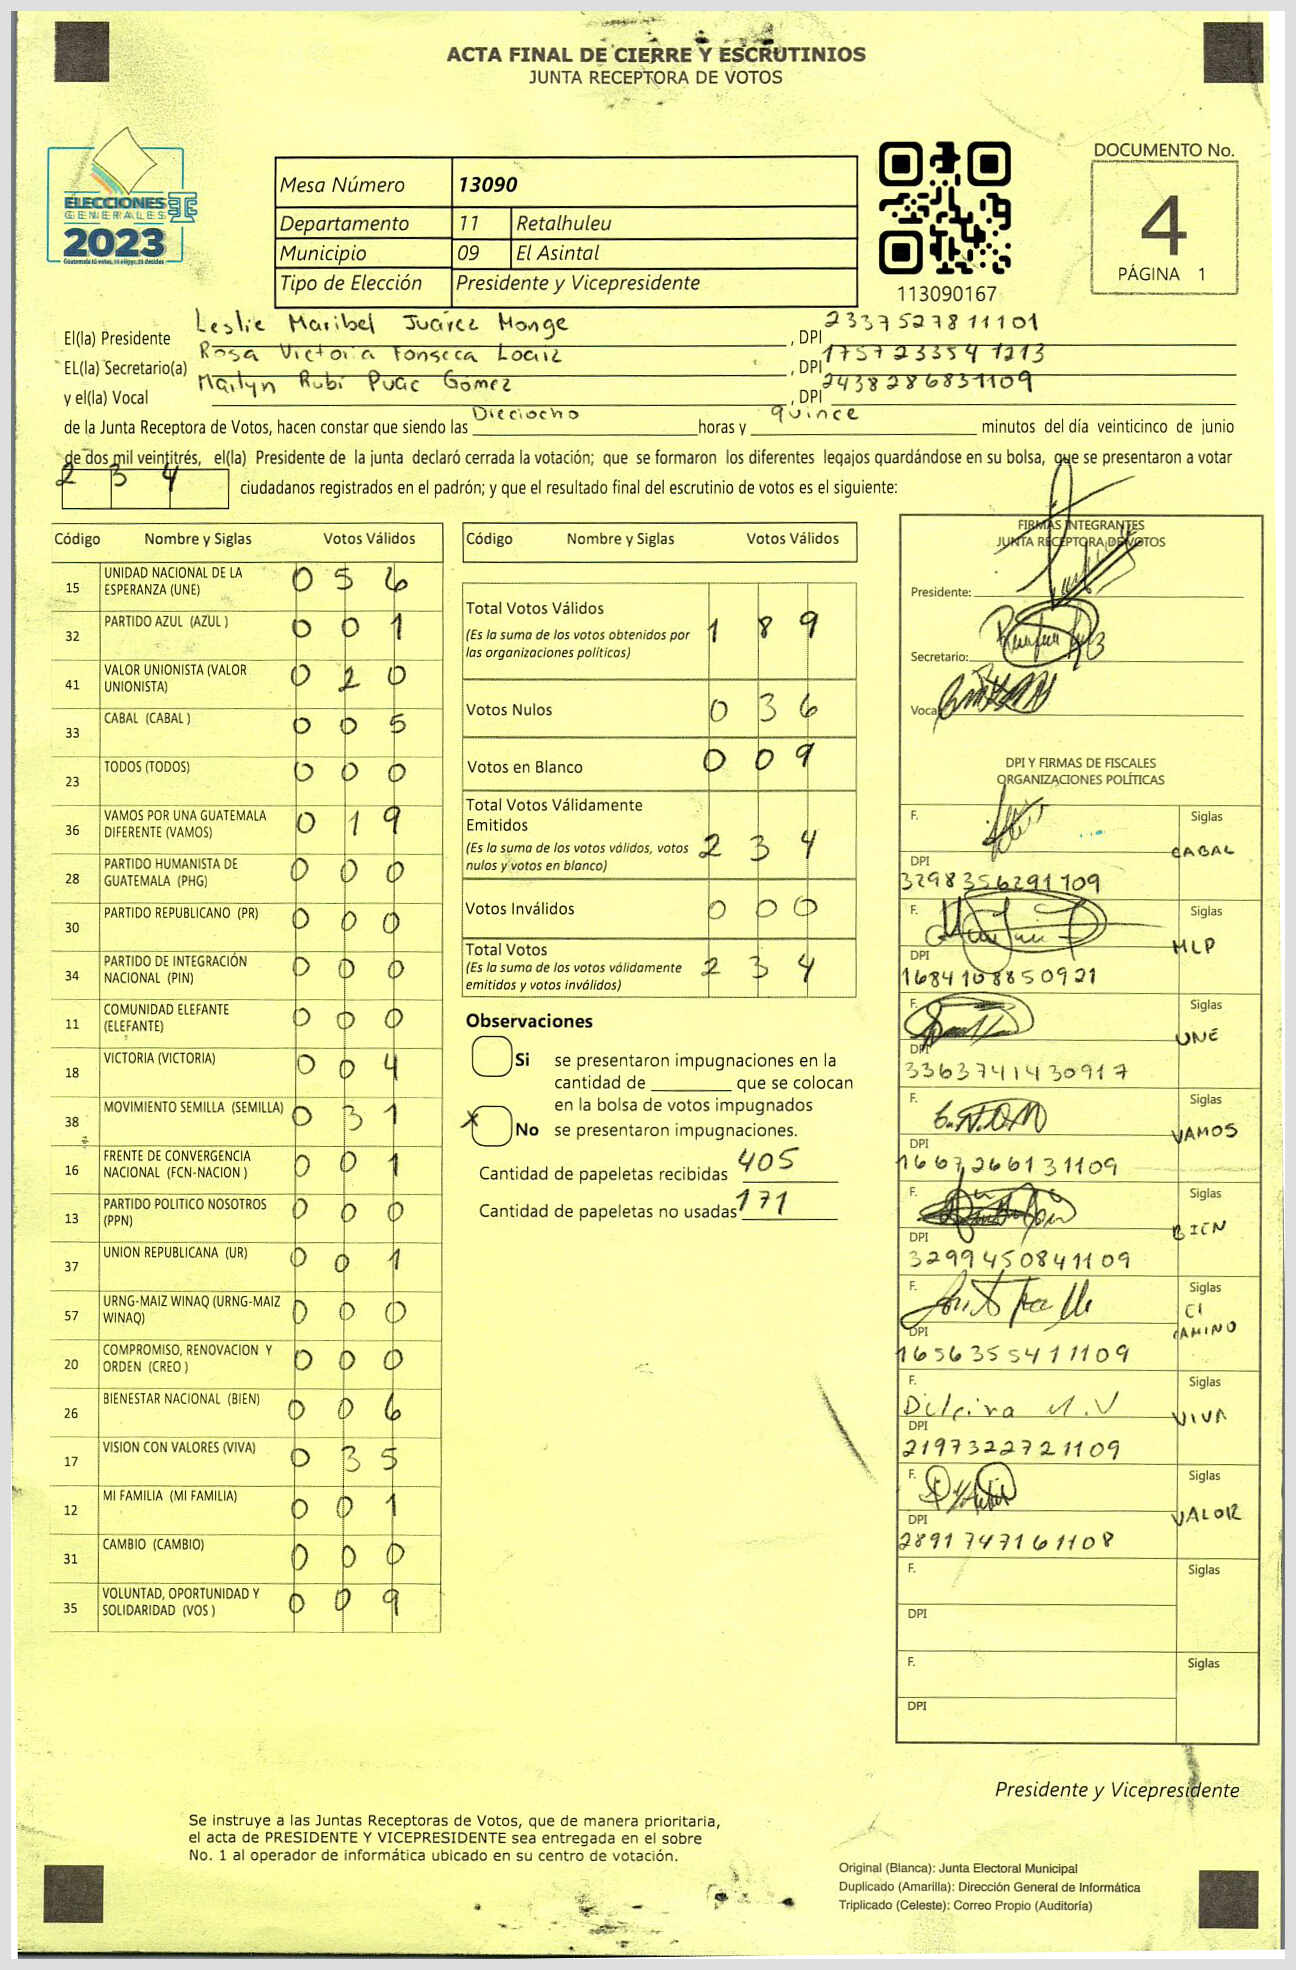 ACTA FINAL DE CIERRE Y ESCRUTINIOS
JUNTA RECEPTORA DE VOTOS
ELECCIONES
GENERALES
2023
Mesa Número 13090
Departamento 11 Retalhuleu
Municipio 09 El Asintal
Tipo de Elección Presidente y Vicepresidente
113090167
DOCUMENTO No.
4
PÁGINA 1
El(la) Presidente Leslie Maribel Juárez Monge, DPI 2337527811101
EL(la) Secretario(a) Rosa Victoria Fonseca Loaiz, DPI 1757233541213
y el(la) Vocal Mailyn Rubi Puac Gómez, DPI 2438286831109
de la Junta Receptora de Votos, hacen constar que siendo las Dieciocho horas y quince minutos del día veinticinco de junio
de dos mil veintitrés, el(la) Presidente de la junta declaró cerrada la votación; que se formaron los diferentes legajos guardándose en su bolsa, que se presentaron a votar
2 3 4 ciudadanos registrados en el padrón; y que el resultado final del escrutinio de votos es el siguiente:
Código Nombre y Siglas Votos Válidos
15 UNIDAD NACIONAL DE LA ESPERANZA (UNE) 0 5 6
32 PARTIDO AZUL (AZUL ) 0 0 1
41 VALOR UNIONISTA (VALOR UNIONISTA) 0 2 0
33 CABAL (CABAL ) 0 0 5
23 TODOS (TODOS) 0 0 0
36 VAMOS POR UNA GUATEMALA DIFERENTE (VAMOS) 0 1 9
28 PARTIDO HUMANISTA DE GUATEMALA (PHG) 0 0 0
30 PARTIDO REPUBLICANO (PR) 0 0 0
34 PARTIDO DE INTEGRACIÓN NACIONAL (PIN) 0 0 0
11 COMUNIDAD ELEFANTE (ELEFANTE) 0 0 0
18 VICTORIA (VICTORIA) 0 0 4
38 MOVIMIENTO SEMILLA (SEMILLA) 0 3 1
16 FRENTE DE CONVERGENCIA NACIONAL (FCN-NACION ) 0 0 1
13 PARTIDO POLITICO NOSOTROS (PPN) 0 0 0
37 UNION REPUBLICANA (UR) 0 0 1
57 URNG-MAIZ WINAQ (URNG-MAIZ WINAQ) 0 0 0
20 COMPROMISO, RENOVACION Y ORDEN (CREO ) 0 0 0
26 BIENESTAR NACIONAL (BIEN) 0 0 6
17 VISION CON VALORES (VIVA) 0 3 5
12 MI FAMILIA (MI FAMILIA) 0 0 1
31 CAMBIO (CAMBIO) 0 0 0
35 VOLUNTAD, OPORTUNIDAD Y SOLIDARIDAD (VOS ) 0 0 9
Código Nombre y Siglas Votos Válidos
Total Votos Válidos 1 8 9
(Es la suma de los votos obtenidos por
las organizaciones políticas)
Votos Nulos 0 3 6
Votos en Blanco 0 0 9
Total Votos Válidamente
Emitidos 2 3 4
(Es la suma de los votos válidos, votos
nulos y votos en blanco)
Votos Inválidos 0 0 0
Total Votos 2 3 4
(Es la suma de los votos válidamente
emitidos y votos inválidos)
Observaciones
Si se presentaron impugnaciones en la
cantidad de ________ que se colocan
en la bolsa de votos impugnados
X No se presentaron impugnaciones.
Cantidad de papeletas recibidas 405
Cantidad de papeletas no usadas 171
FIRMAS INTEGRANTES
JUNTA RECEPTORA DE VOTOS
Presidente:
Secretario:
Vocal
DPI Y FIRMAS DE FISCALES
ORGANIZACIONES POLÍTICAS
F. Siglas CABAL
DPI 3298356291109
F. Siglas MLP
DPI 1684108850921
F. Siglas UNE
DPI 3363741430917
F. Siglas VAMOS
DPI 1667266131109
F. Siglas BIEN
DPI 3299450841109
F. Siglas CI CAMINO
DPI 1656355411109
F. Siglas VIVA
DPI 2197322721109
F. Siglas VALOR
DPI 2891747161108
F. Siglas
DPI
F. Siglas
DPI
Presidente y Vicepresidente
Se instruye a las Juntas Receptoras de Votos, que de manera prioritaria,
el acta de PRESIDENTE Y VICEPRESIDENTE sea entregada en el sobre
No. 1 al operador de informática ubicado en su centro de votación.
Original (Blanca): Junta Electoral Municipal
Duplicado (Amarilla): Dirección General de Informática
Triplicado (Celeste): Correo Propio (Auditoría)